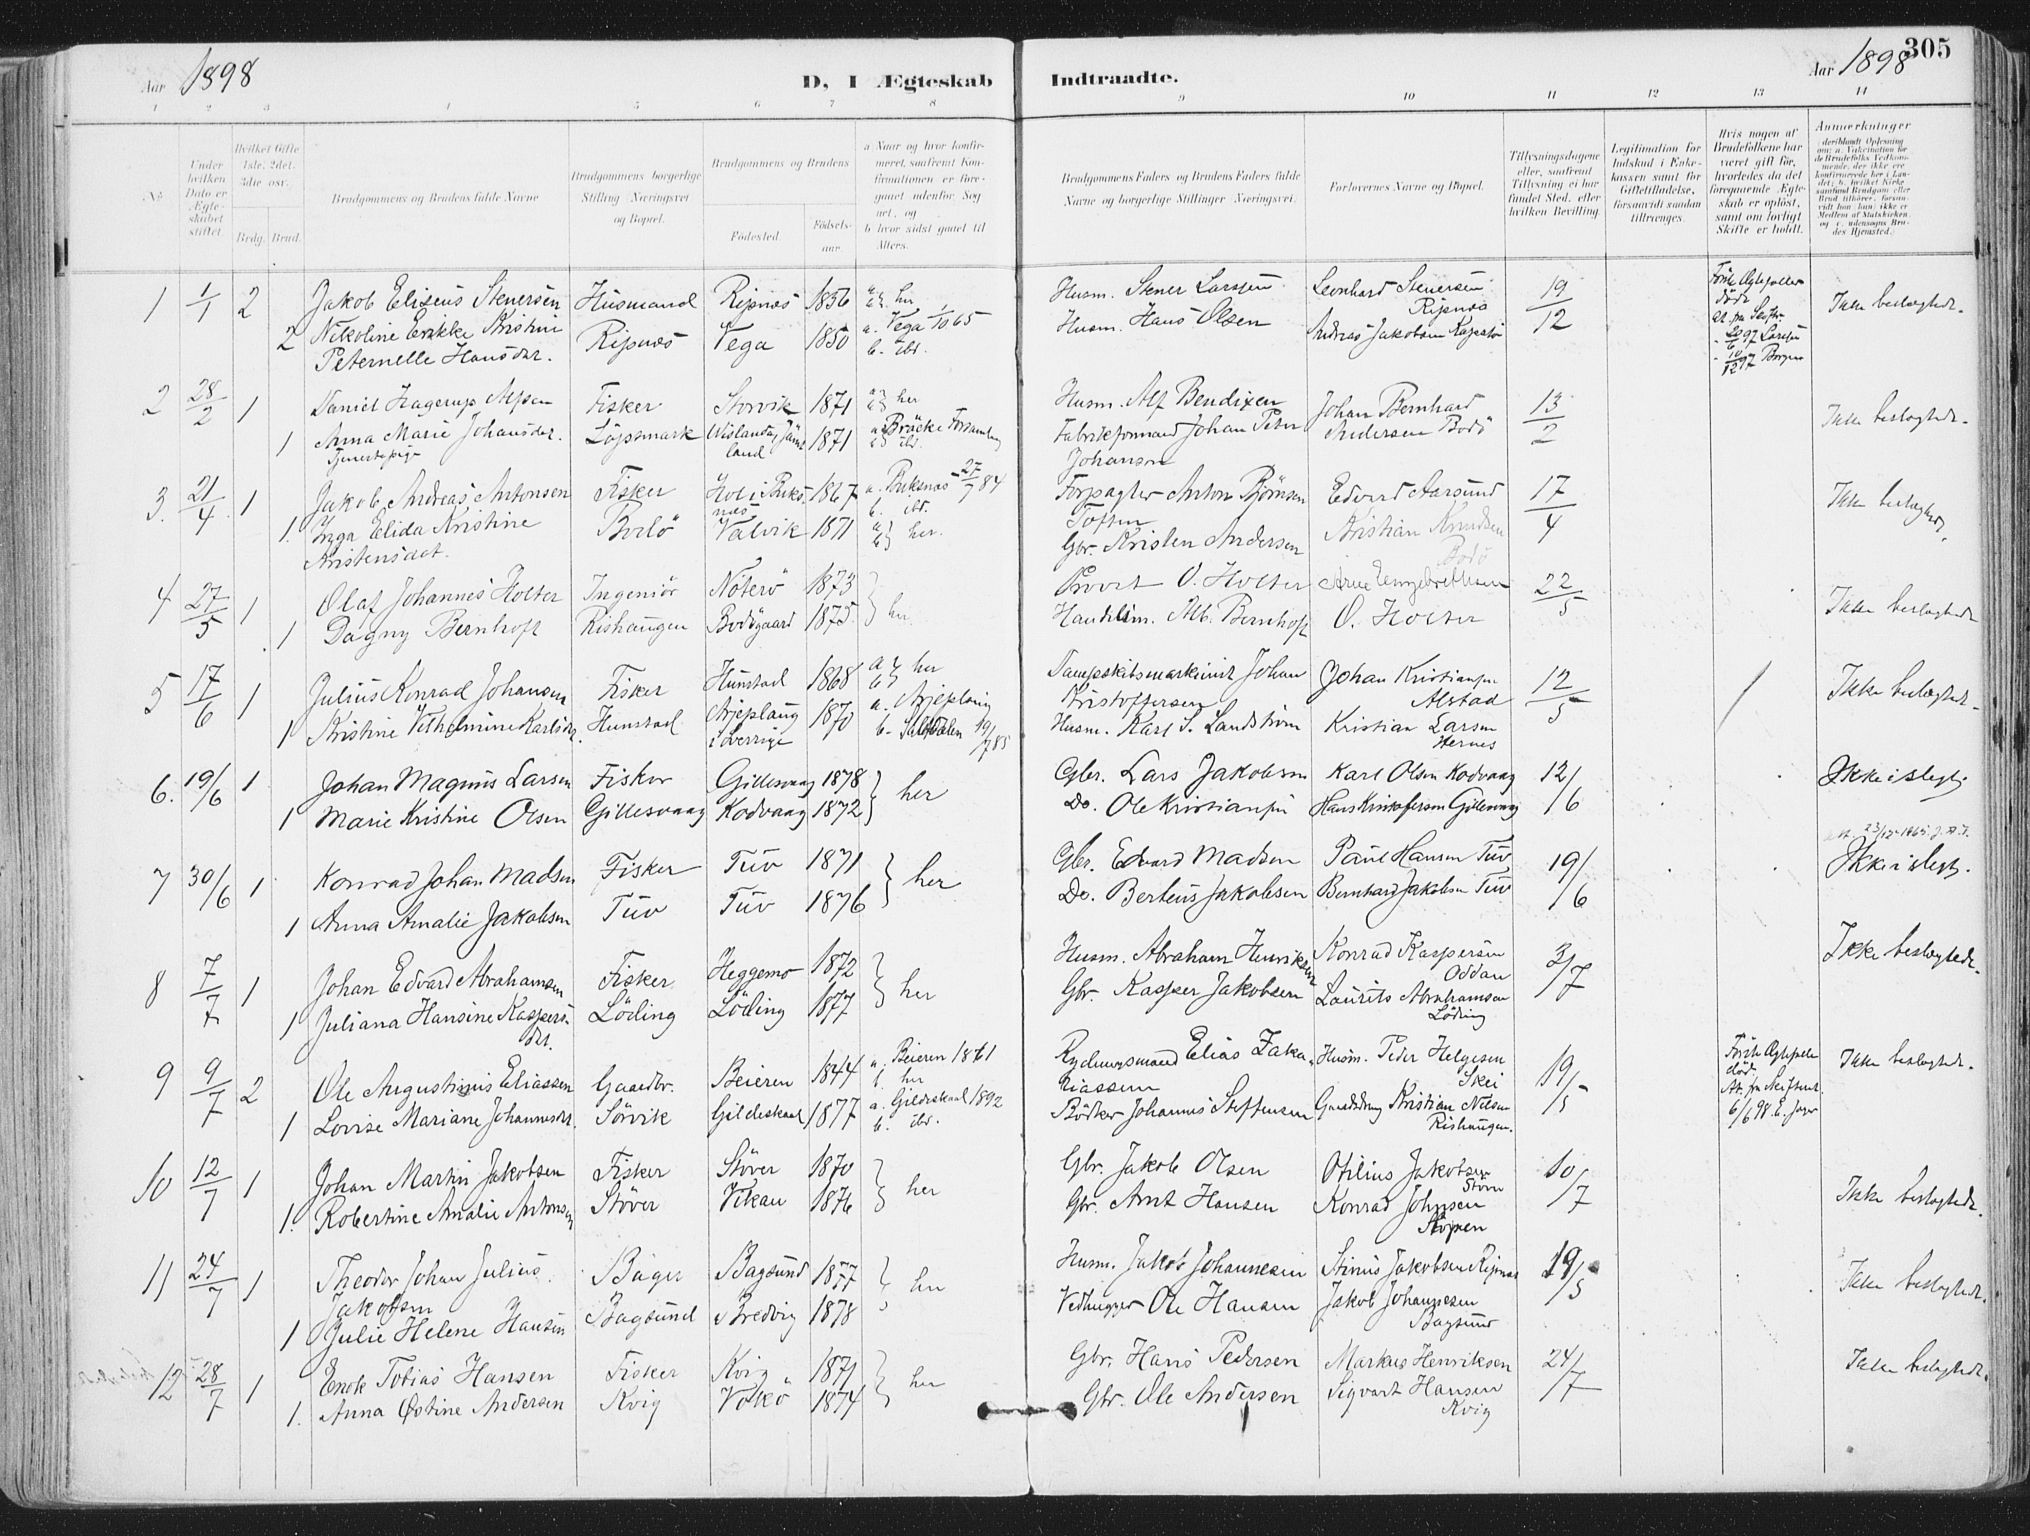 Aar 1898
D, I Ægteskab
Indtraadte.
Aar 1898
305
1 2 3 4 5 6 7 8 9 10 11 12 13 14
No
Under hvilken Dato er Ægteskabet stiftet
Hvilket Gifte 1ste, 2det, 3die osv.
Brdg. Brud.
Brudgommens og Brudens fulde Navne
Brudgommens borgerlige Stilling Næringsvei og Bopæl.
Brudgommens og Brudens
Fødested.
Fødselsaar.
a Naar og hvor konfirmeret, saafremt Konfirmationen er foregaaet udenfor Sognet, og
b hvor sidst gaaet til Alters.
Brudgommens Faders og Brudens Faders fulde Navne og borgerlige Stillinger Næringsvei.
Forlovernes Navne og Bopæl.
Tillysningsdagene eller, saafremt Tillysning ei har fundet Sted, efter hvilken Bevilling.
Legitimation for Indskud i Enkekassen samt for Giftetilladelse, forsaavidt saadan tiltrænges.
Hvis nogen af Brudefolkene har været gift før, hvorledes da det foregaaende Ægteskab er opløst, samt om lovligt Skifte er holdt.
Anmærkninger
1 1/1 2 Jakob Eliseus Stenersen Husmand Ripnæs 1856 a. b. her Husm. Stener Larsen Leonhard Stenersen Ripnæs 19/12 Ikke beslægtede.
2 Nikoline Erikke Kristine Peternelle Hansdtr. Ripnæs Vega 1850 a. Vega 1/10 65 b. ibd. Husm. Hans Olsen Andreas Jakobsen
2 28/2 1 Daniel Hagerup Alfsen Fisker Storvik 1871 a. b. her Husm. Alf Bendixen Johan Bernhard Andersen Bodö 13/2 Ikke beslægtede.
1 Anna Marie Johansdtr. Tjenestepige Löpsmark 1871 a. Bräcke Forsamling b. ibd. Fabrikformand Johan Peter Johanson
3. 21/4 1 Jakob Andreas Antonsen Fisker Hol i Buksnæs 1867 a. Buksnæs 27/7 84 b. ibd. Forpagter Anton Björnsen Toften Edvard Aarsund 17/4 Ikke beslægtede
1. Inga Elida Kristine Kristensdat. Bodö Valvik 1871 a. b. her. Gbr. Kristen Andersen Kristian Knudsen Bodö
4 27/5 1 Olaf Johannes Holter Ingeniör Nöterö 1873 her Provst O. Holter Arne Engebrethsen 22/5 Ikke beslægtede
1 Dagny Bernhoft Rishaugen Bodögaard 1875. Handelsm. Alb. Bernhoft O. Holter
5 17/6 1 Julius Konrad Johansen Fisker Hunstad 1868 a. b. her Dampskibsmaskinist Johan Kristoffersen Johan Kristiansen Alstad 12/5 Ikke beslægtede.
1 Kristine Vilhelmine Karlsdtr. Hunstad Arjeplaug i Sverrige 1870 a. Arjeplaug b. Saltdalen 19/7 85 Husm. Karl S. Landström Kristian Larsen Hernes
6. 19/6 1 Johan Magnus Larsen Fisker Gillesvaag 1878 her Gbr. Lars Jakobsen Karl Olsen Kodvaag 12/6 Ikke i slegt.
1 Marie Kristine Olsen Gillesvaag Kodvaag 1872 Do. Ole Kristiansen Hans Kristofersen Gillesvaag
7 30/6 1 Konrad Johan Madsen Fisker Tuv 1871 her Gbr. Edvard Madsen Paul Hansen Tuv 19/6 Ikke i slegt.
1 Anna Amalie Jakobsen Tuv Tuv 1876 Do. Berteus Jakobsen Bernhard Jakobsen Tuv
8 7/7 1 Johan Edvard Abrahamsen Fisker Heggemo 1872 her Husm. Abraham Henriksen Konrad Kaspersen Oddan 3/7 Ikke beslægtede.
1 Juliana Hansine Kaspersdtr. Löding Löding 1877 Gbr. Kasper Jakobsen Laurits Abrahamsen Löding
9 9/7 2 Ole Augustinus Eliassen Gaardbr. Beieren 1844 a. Beieren 1861 b. her Rydningsmand Elias Zakariassen Husm. Peder Helgesen Skei 19/5 Ikke beslægtede.
1 Lovise Mariane Johannesdtr. Sörvik Gildeskaal 1877 a. Gildeskaal 1892 b. ibd. Bödker Johannes Steffensen Gaardsdreng Kristian Nilsen Rishaugen.
10 12/7 1 Johan Martin Jakobsen Fisker Stöver 1870 her Gbr. Jakob Olsen Otilius Jakobsen Stöver 10/7 Ikke beslægtede.
1. Robertine Amalie Antonsen Stöver Vikan 1876 Gbr. Arnt Hansen Konrad Johnsen
11 24/7 1 Theodor Johan Julius Jakobsen Bager Bagsund 1877 her Husm. Jakob Johannesen Stinus Jakobsen Ripnæs 19/5 Ikke beslægtede.
1 Julie Helene Hansen Bagsund Bredvig 1878 Vedhugger Ole Hansen Jakob Johannesen Bagsund
12 28/7 1 Enok Tobias Hansen Fisker Kvig 1871 her Gbr. Hans Pedersen Markus Henriksen 24/7 Ikke beslægtede.
1. Anna Østine Andersen Kvig Valkö 1874 Gbr. Ole Andersen Sigvart Hansen Kvig